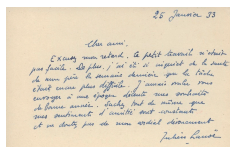 26 Janvier 33
Cher ami,
Excusez mon retard, le petit travail n'était
pas facile. De plus, j'ai été si inquiet de la santé
de mon père la semaine dernière que la tâche
était encore plus difficile. J'aurais voulu vous
envoyer à une époque décente mes souhaits
de bonne année. Sachez tout de même que
mes sentiments d'amitié sont constants
et ne doutez pas de mon cordial dévouement
Julien Lanoë